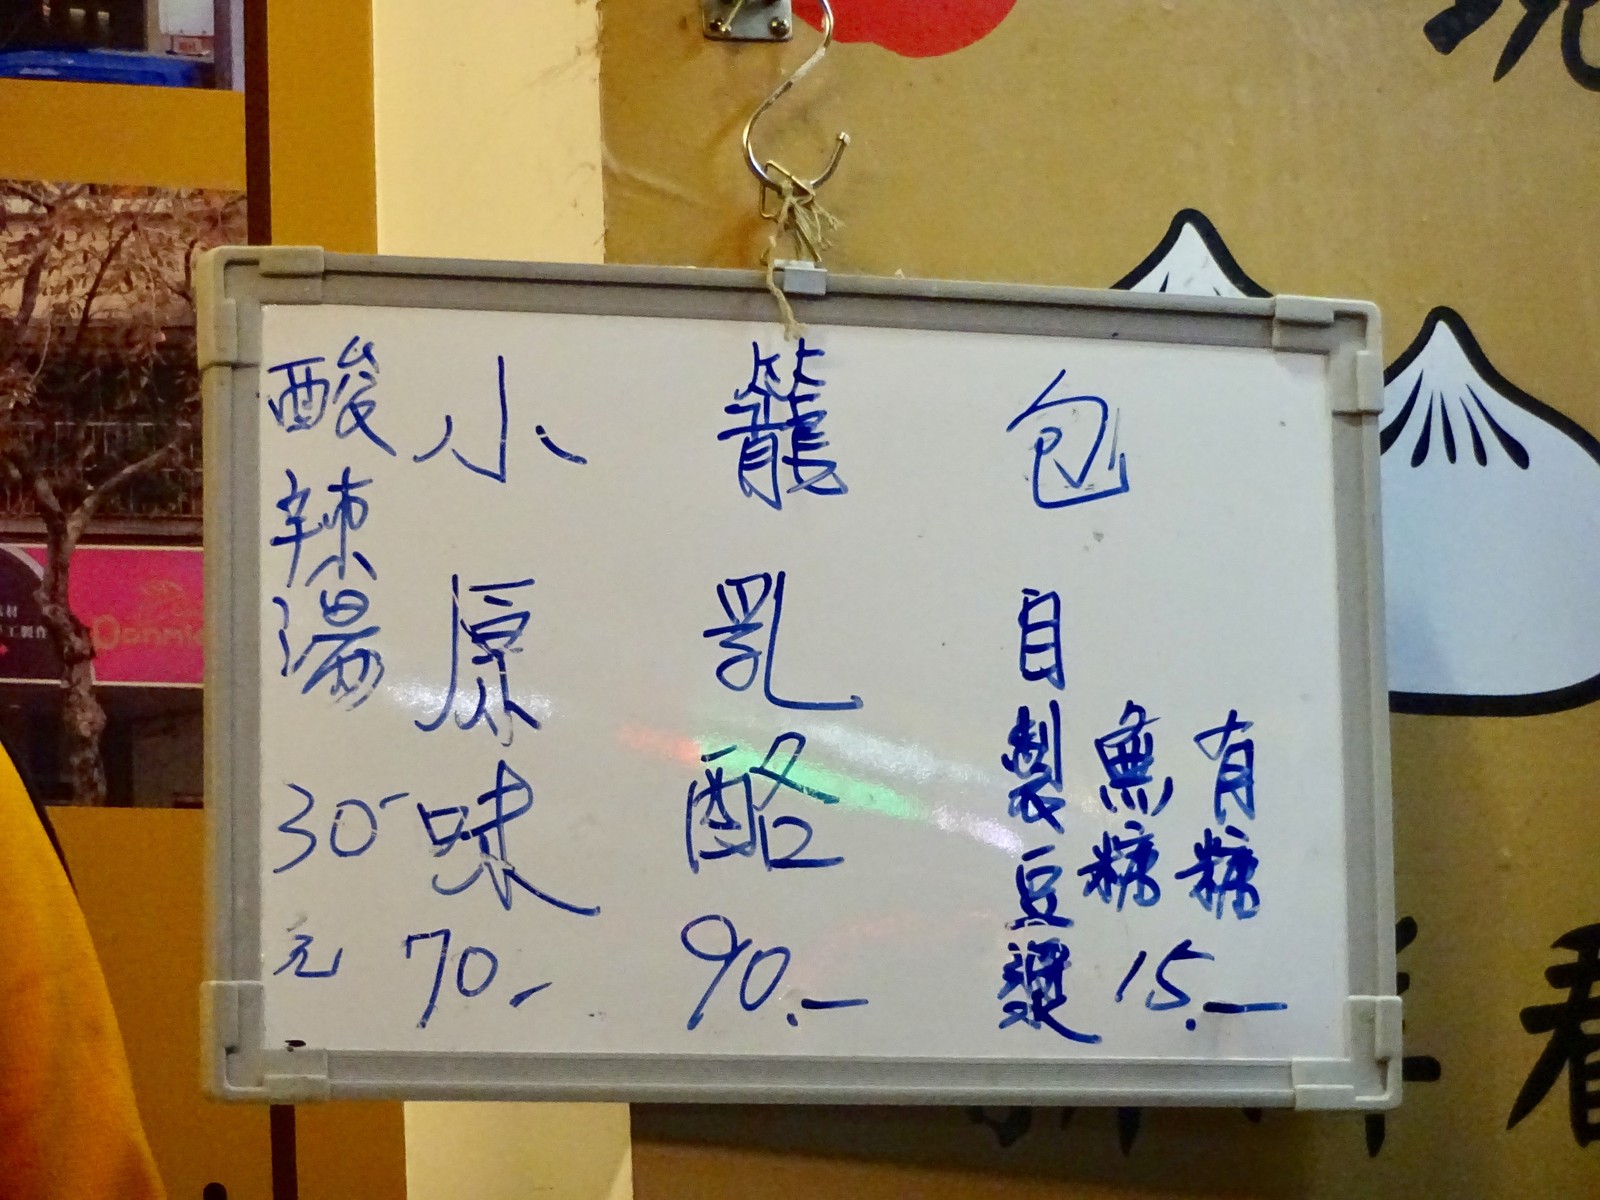 小籠包
酸辣湯 30元
原味 70.-
乳酪 90.-
自製豆漿
無糖
有糖
15.-
看